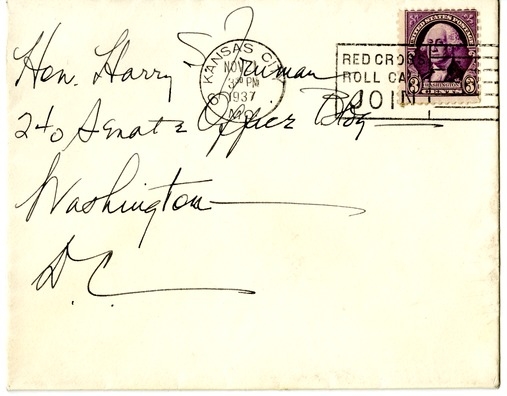 Hon. Harry S Truman
240 Senate Office Bldg
Washington
D.C.
KANSAS CITY
NOV
PM
1937
MO.
RED CROSS
ROLL CALL
JOIN
UNITED STATES POSTAGE
3 WASHINGTON 3